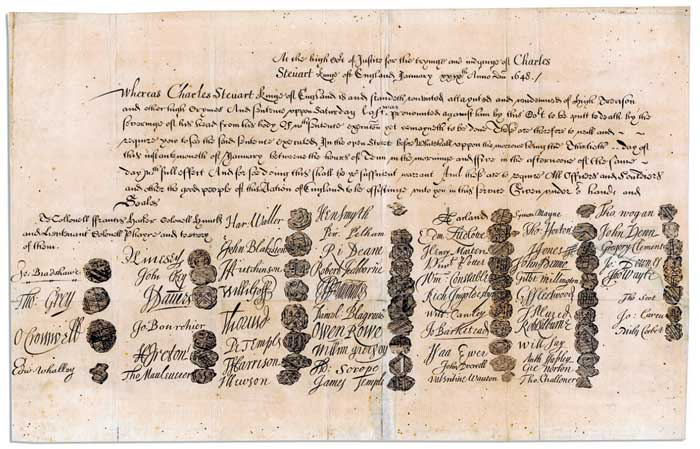 At the high Cot of Justice for the tryinge and iudginge of Charles
Steuart kinge of England January xxixth Anno Dni 1648./
Whereas Charles Steuart kinge of England is and standeth convicted attaynted and condemned of High Treason
and other high Crymes And sentence uppon Saturday last was pronounced against him by this Cot to be putt to death by the
severinge of his head from his body Of wch sentence execucon yet remayneth to be done These are therefore to will and
require you to see the said sentence executed In the open Streete before Whitehall uppon the morrowe being the Thirtieth day of
this instante moneth of January betweene the houres of Tenn in the morninge and five in the afternoone of the same
day wth full effect And for soe doing this shall be yor sufficient warrant And these are to require All Officers and Souldiers
and other the good people of this Nation of England to be assistinge unto you in this service Given under or hands and
Seales
To Collonell ffrancis Hacker Colonell Huncks
and Lieutenant Colonell Phayre and to every
of them.
Jo. Bradshawe
Tho. Grey
O Cromwell
Edw Whalley
John Okey
J Danvers
Jo Bourchier
H Ireton
Tho Mauleverer
Har Waller
John Blakiston
J Hutchinson
Willi Goff
P Temple
T Harrison
J Hewson
Hen Smyth
Per. Pelham
Ri Deane
Robert Tichborne
Owen Rowe
James Temple
Hen Marten
Wm Constable
Rich Ingoldesby
Will Cawley
Jo Barkstead
Isaa Ewer
Valentine Wauton
Symon Mayne
Tho Horton
J Jones
Gilbt Millington
G Fleetwood
Will Say
Anth Stapley
Gre Norton
Tho Challoner
Tho Wogan
John Venn
Gregory Clement
Jo Downes
Tho Wayte
Tho Scot
Jo Carew
Miles Corbet